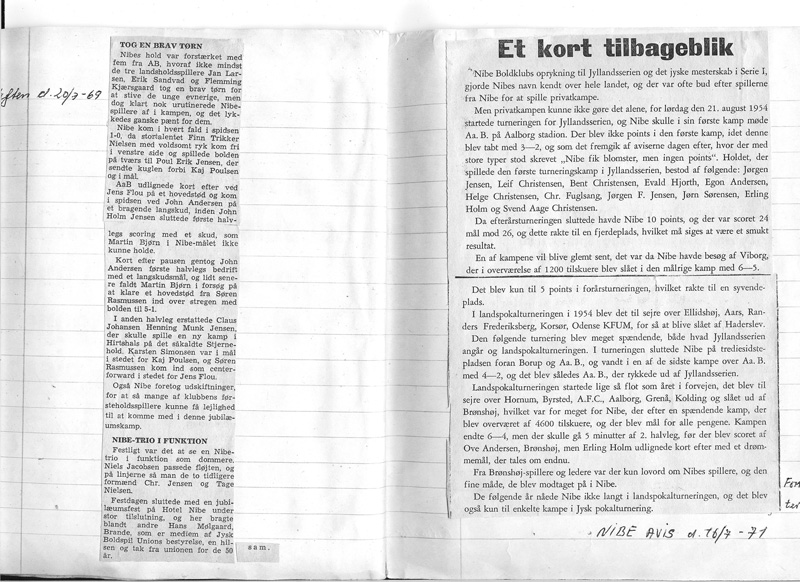 ften d. 20/7-69
TOG EN BRAV TØRN
Nibes hold var forstærket med
fem fra AB, hvoraf ikke mindst
de tre landsholdsspillere Jan Lar-
sen, Erik Sandvad og Flemming
Kjærsgaard tog en brav tørn for
at stive de unge evnerige, men
dog klart nok urutinerede Nibe-
spillere af i kampen, og det lyk-
kedes ganske pænt for dem.
Nibe kom i hvert fald i spidsen
1-0, da stortalentet Finn Trikker
Nielsen med voldsomt ryk kom fri
i venstre side og spillede bolden
på tværs til Poul Erik Jensen, der
sendte kuglen forbi Kaj Poulsen
og i mål.
AaB udlignede kort efter ved
Jens Flou på et hovedstød og kom
i spidsen ved John Andersen på
et bragende langskud, inden John
Holm Jensen sluttede første halv-
legs scoring med et skud, som
Martin Bjørn i Nibe-målet ikke
kunne holde.
Kort efter pausen gentog John
Andersen første halvlegs bedrift
med et langskudsmål, og lidt sene-
re faldt Martin Bjørn i forsøg på
at klare et hovedstød fra Søren
Rasmussen ind over stregen med
bolden til 5-1.
I anden halvleg erstattede Claus
Johansen Henning Munk Jensen,
der skulle spille en ny kamp i
Hirtshals på det såkaldte Stjerne-
hold. Karsten Simonsen var i mål
i stedet for Kaj Poulsen, og Søren
Rasmussen kom ind som center-
forward i stedet for Jens Flou.
Også Nibe foretog udskiftninger,
for at så mange af klubbens før-
steholdsspillere kunne få lejlighed
til at komme med i denne jubilæ-
umskamp.
NIBE-TRIO I FUNKTION
Festligt var det at se en Nibe-
trio i funktion som dommere.
Niels Jacobsen passede fløjten, og
på linjerne så man de to tidligere
formænd Chr. Jensen og Tage
Nielsen.
Festdagen sluttede med en jubi-
læumsfest på Hotel Nibe under
stor tilslutning, og her bragte
blandt andre Hans Mølgaard,
Brande, som er medlem af Jysk
Boldspil Unions bestyrelse, en hil-
sen og tak fra unionen for de 50
år.
sam.
Et kort tilbageblik
Nibe Boldklubs oprykning til Jyllandsserien og det jyske mesterskab i Serie I,
gjorde Nibes navn kendt over hele landet, og der var ofte bud efter spillerne
fra Nibe for at spille privatkampe.
Men privatkampen kunne ikke gøre det alene, for lørdag den 21. august 1954
startede turneringen for Jyllandsserien, og Nibe skulle i sin første kamp møde
Aa. B. på Aalborg stadion. Der blev ikke points i den første kamp, idet denne
blev tabt med 3—2, og som det fremgik af aviserne dagen efter, hvor der med
store typer stod skrevet „Nibe fik blomster, men ingen points”. Holdet, der
spillede den første turneringskamp i Jyllandsserien, bestod af følgende: Jørgen
Jensen, Leif Christensen, Bent Christensen, Evald Hjorth, Egon Andersen,
Helge Christensen, Chr. Fuglsang, Jørgen F. Jensen, Jørn Sørensen, Erling
Holm og Svend Aage Christensen.
Da efterårsturneringen sluttede havde Nibe 10 points, og der var scoret 24
mål mod 26, og dette rakte til en fjerdeplads, hvilket må siges at være et smukt
resultat.
En af kampene vil blive glemt sent, det var da Nibe havde besøg af Viborg,
der i overværelse af 1200 tilskuere blev slået i den målrige kamp med 6—5.
Det blev kun til 5 points i forårsturneringen, hvilket rakte til en syvende-
plads.
I landspokalturneringen i 1954 blev det til sejre over Ellidshøj, Aars, Ran-
ders Frederiksberg, Korsør, Odense KFUM, for så at blive slået af Haderslev.
Den følgende turnering blev meget spændende, både hvad Jyllandsserien
angår og landspokalturneringen. I turneringen sluttede Nibe på trediesidste-
pladsen foran Borup og Aa. B., og vandt i en af de sidste kampe over Aa. B.
med 4—2, og det blev således Aa. B., der rykkede ud af Jyllandsserien.
Landspokalturneringen startede lige så flot som året i forvejen, det blev til
sejre over Hornum, Byrsted, A.F.C., Aalborg, Grenå, Kolding og slået ud af
Brønshøj, hvilket var for meget for Nibe, der efter en spændende kamp, der
blev overværet af 4600 tilskuere, og der blev mål for alle pengene. Kampen
endte 6—4, men der skulle gå 5 minutter af 2. halvleg, før der blev scoret af
Ove Andersen, Brønshøj, men Erling Holm udlignede kort efter med et drøm-
memål, der tales om endnu.
Fra Brønshøj-spillere og ledere var der kun lovord om Nibes spillere, og den
fine måde, de blev modtaget på i Nibe.
De følgende år nåede Nibe ikke langt i landspokalturneringen, og det blev
også kun til enkelte kampe i Jysk pokalturnering.
NIBE AVIS d. 16/7 -71
For
ter